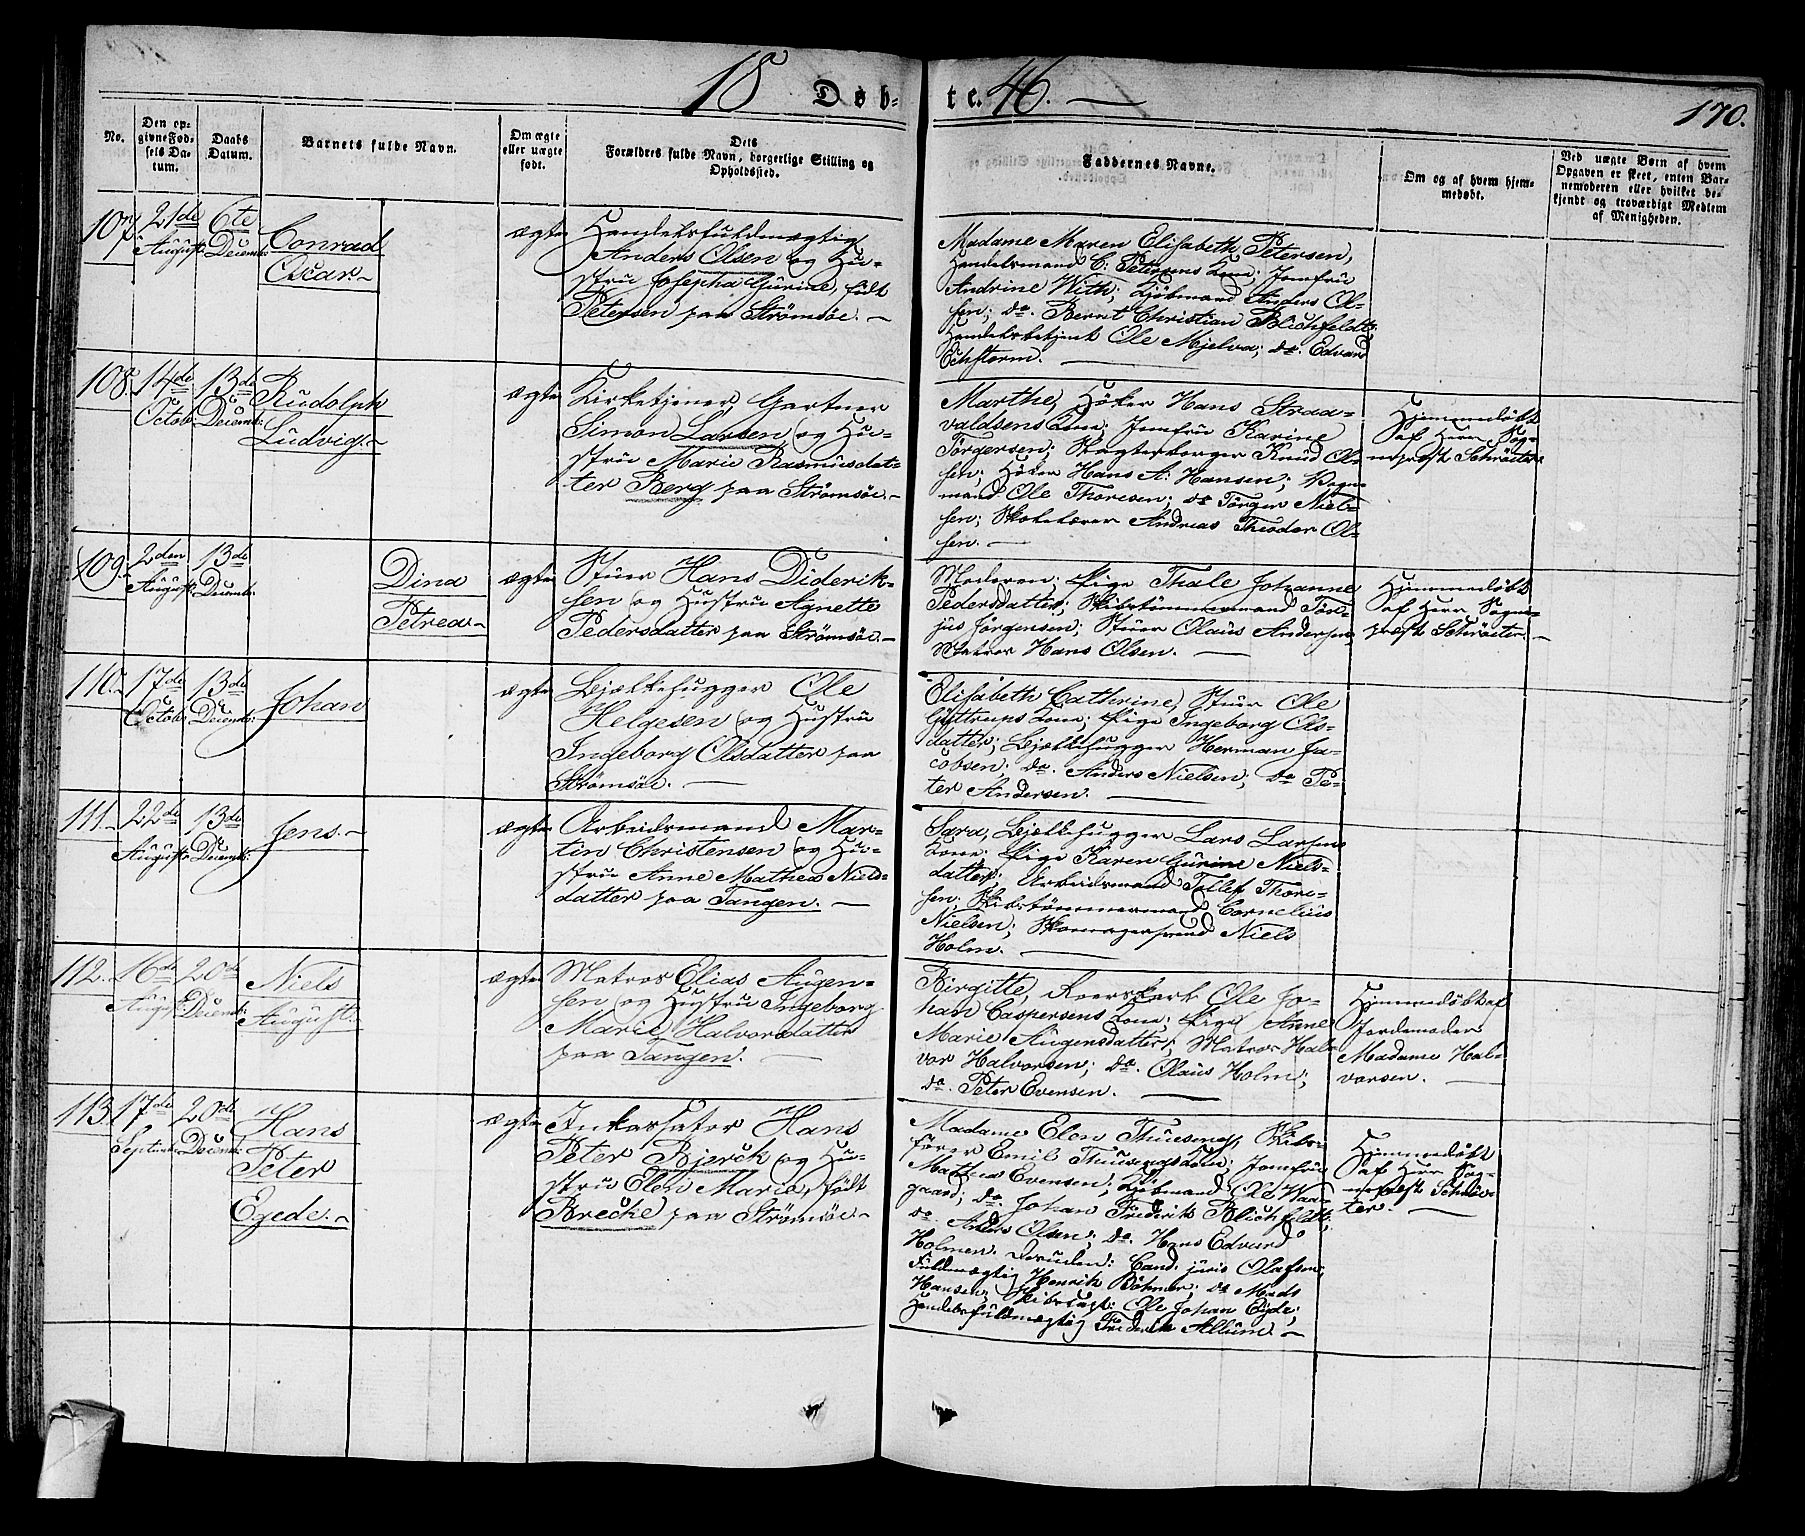 18 Døb- te. 46. —
170.
No.
Den op-
givne Fød-
sels Da-
tum.
Daabs
Datum.
Barnets fulde Navn.
Om ægte
eller uægte
født.
Dets
Forældres fulde Navn, borgerlige Stilling og
Opholdssted.
Faddernes Navne.
Om og af hvem hjem-
medøbt.
Ved uægte Børn af hvem
Opgaven er skeet, enten Bar-
nemoderen eller hvilket be-
kjendt og troværdigt Medlem
af Menigheden.
107.
21de
August
6te
Decemb:
Conrad
Oscar.
ægte
Handelsfuldmægtig
Anders Olsen og Hu-
stru Josepha Gurine, født
Petersen paa Strømsøe. —
Madame Maren Elisabeth Petersen,
Handelsmand C. Petersens Kone; Jomfru
Andrine With; Kjöbmand Anders Ol-
sen; do. Bernt Christian Blichfeldt;
Handelsbetjent Ole Mjelva; do. Edvard
Schstorm. —
108.
14de
Octob.
13de
Decemb:
Rudolph
Ludvig. —
ægte
Kirketjener, Gartner
Simon Larsen og Hu-
stru Marie Rasmusdat-
ter Berg paa Strømsøe. —
Marthe, Höker Hans Straa-
valdsens Kone; Jomfru Karine
Törgersen; Slagterborger Knud Ol-
sen; Höker Hans A. Hansen; Vogn-
mand Ole Thoresen; do Törger Niel-
sen; Skolelærer Andreas Theodor Ol-
sen. —
Hjemmedøbt
af Herr Sog-
neprest Schröeter
109.
2den
August
13de
Decemb.
Dina
Petrea. —
ægte
Stuer Hans Diderik-
sen og Hustru Agnette
Pedersdatter paa Strømsøe. —
Moderen; Pige Thale Johanne
Pedersdatter; Skibstömmermand Tör-
jus Jörgensen; Stuer Olaus Andersen,
Matros Hans Olsen. —
Hjemmedøbt
af Herr Sogne-
prest Schröeter. —
110.
17de
Octob:
13de
Decemb:
Johan
ægte
Bjelkehugger Ole
Helgesen og Hustru
Ingeborg Olsdatter paa
Strømsøe. —
Elisabeth Cathrine, Stuer Ole
Gyttrups Kone; Pige Ingeborg Ols-
datter; Bjelkehugger Herman Ja-
cobsen; do. Anders Nielsen; do Pe-
ter Andersen. —
111.
22de
August
13de
Decemb:
Jens. —
ægte
Arbeidsmand Mar-
tin Christensen og Hu-
stru Anne Mathea Niels-
datter paa Tangen. —
Sara, Bjelkehugger Lars Larsens
Kone; Pige Karen Gurine Niels-
datter; Arbeidsmand Tollef Thore-
sen; Skibstömmermand Cornelius
Nielsen; Skomagersvend Niels
Holm. —
112.
16de
August
20de
Decemb:
Niels
August. —
ægte
Matros Elias Augen-
sen og Hustru Ingeborg
Marie Halvorsdatter
paa Tangen. —
Birgitte, Ole Jo-
han Caspersens Kone; Pige Anne
Marie Augensdatter; Matros Hal-
vor Halvorsen; do. Olaus Holm;
do. Peter Evensen. —
Hjemmedøbt af
Jordemoder
Madame Hal-
vorsen. —
113.
17de
Septemb:
20de
Decemb:
Hans
Peter
Egede. —
ægte
Inkassator Hans
Peter Bjerck og Hu-
stru Elen Marie, født
Brecke paa Strømsøe. —
Madame Elen Thuesen, Skibs-
förer Emil Thuesens Kone; Jomfru
Mathea Evensen; Kjöbmand Ole Waar-
gaard; do. Johan Frederik Blichfeldt;
do. Anders Olsen; do. Hans Edvard
Holmen. Desuden: Cand. juris Olafsen;
Fuldmægtig Henrik Böhmer; do Mads
Hansen; Skibscapt: Ole Johan Eyde;
Handelsfuldmægtig Frederik Allum. —
Hjemmedøbt
af Herr Sog-
neprest Schröe-
ter. —